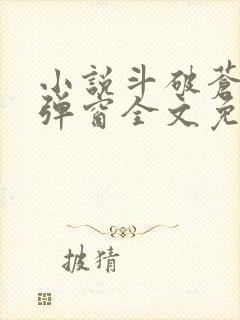 小說斗破蒼
彈窗全文免
披猜